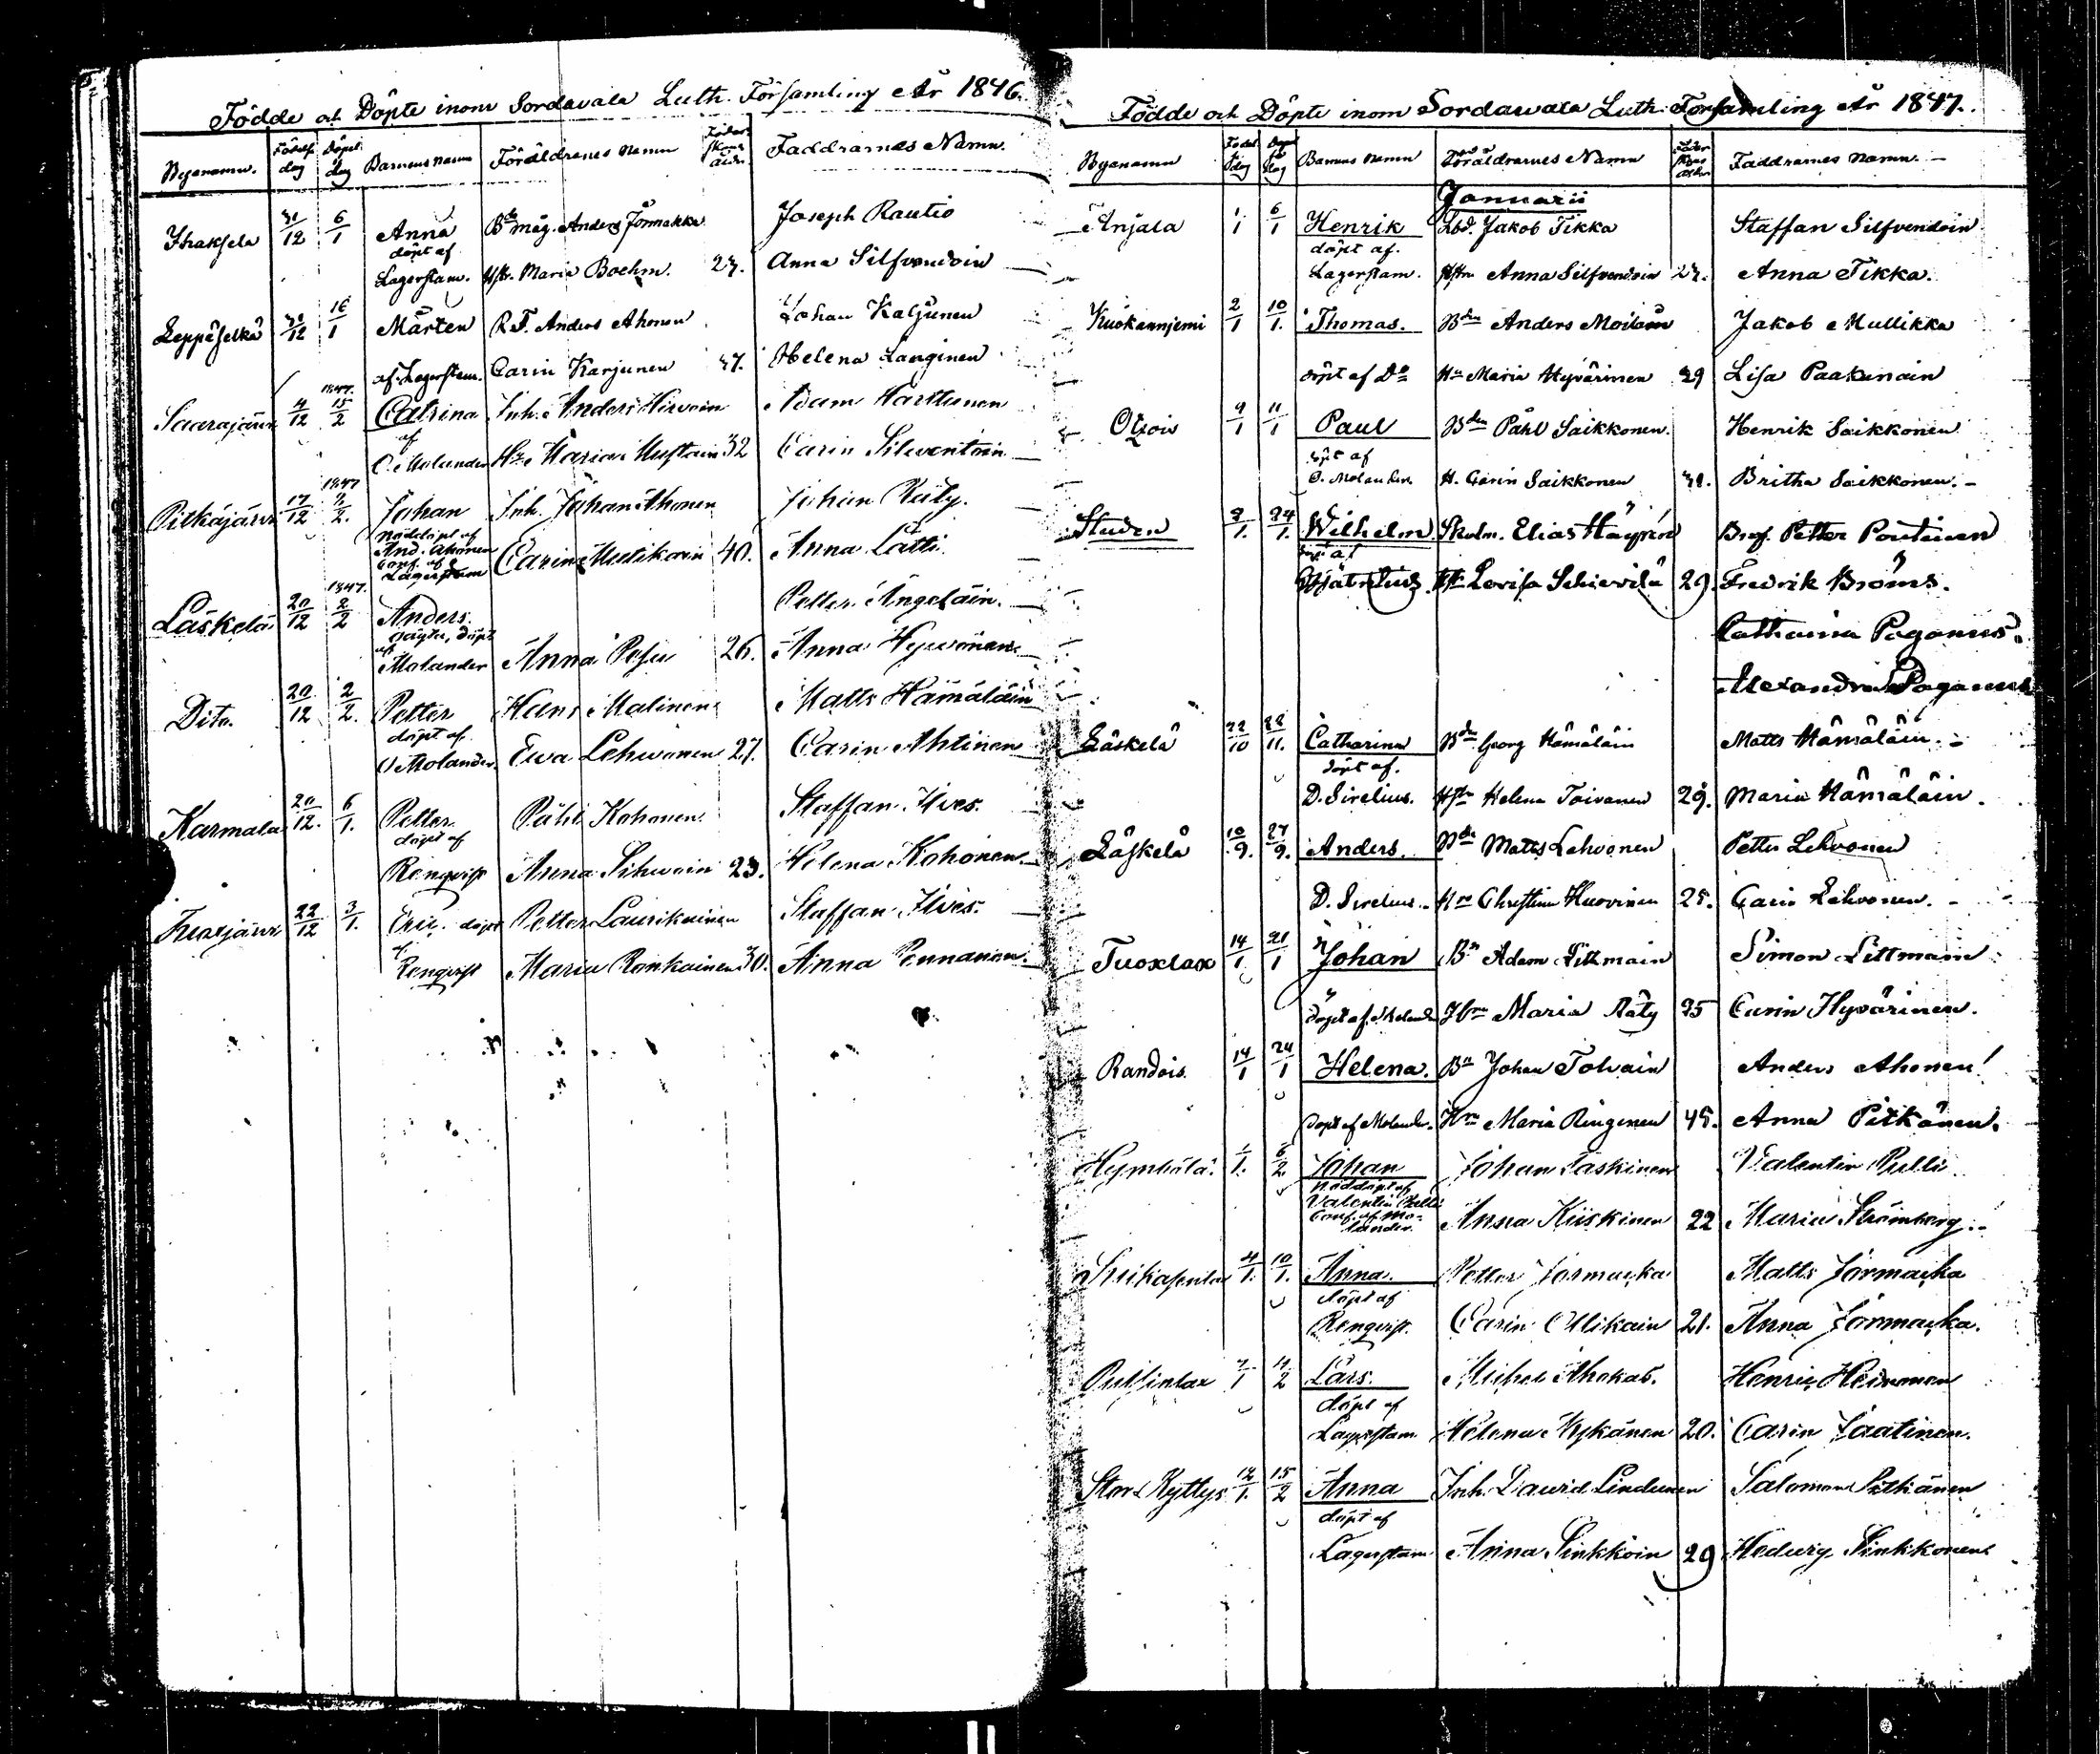 Födde och Döpte inom Sordavala Luth. Församling År 1846.
Byanamn. Födelse dag Döpel. dag Barnens namn Föräldrarnes namn Föder skans ålder Faddrarnes Namn.
31/12 6/1 Anna Bdemåg. Anders Jormakka Joseph Rautio
döpt af
Lagerstam. Hst. Maria Boehm. 27. Anna Silfvendoin
Leppäselkä 31/12 16/1 Mårten R.T. Anders Ahonen Johan Karjunen
af Lagerstam. Carin Karjunen 37. Helena Langinen
1847.
Saarajärvi 4/12 15/2 Catrina Inh. Anders Hirvoin Adam Harttunen
af
O. Molander Hu. Maria Mustain 32 Carin Silventoin
1847
Pitkäjärvi 17/12 2/2. Johan Inh. Johan Ahonen Johan Räty.
Nöddöpt af
And. Ahonen
Conf. af
Lagerstam Carin Mustikain 40. Anna Lätti
1847.
Läskelä 20/12 2/2 Anders. Petter Ängeläin.
oägta, döpt
af
Molander Anna Pesu 26. Anna Hyvönen
Dito. 20/12 2/2. Petter Hans Malinen Matts Hämäläin
döpt af
O Molander. Ewa Lehvonen 27. Carin Ahtinen
Karmala 20/12. 6/1. Petter Påhl Kohonen Staffan Ilves.
döpt af
Renqvist Anna Sihvoin 23. Helena Kohonen
22/12 3/1. Eric. döpt Petter Laurikainen Staffan Ilves.
af
Renqvist Maria Ronkainen 30. Anna Pennanen.
Födde och Döpte inom Sordawala Luth. Församling År 1847.
Byanamn Födel. dag Döpel. dag Barnens namn Föräldrarnes Namn Föder skans ålder Faddrarnes namn.
Januarii
Anjala 1/1 6/1 Henrik Lbd. Jakob Tikka Staffan Silfvendoin
döpt af.
Lagerstam. Hstru Anna Silfvendoin 27. Anna Tikka.
Kuokanniemi 2/1 10/1. Thomas. Bden Anders Moilain Jakob Mullikka
döpt af Do Hu Maria Hyvärinen 29 Lisa Paakunain
Otsois 9/1 11/1 Paul Bden Påhl Saikkonen. Henrik Saikkonen
döpt af
O. Molander. H. Carin Saikkonen 31. Britha Saikkonen.
Staden 3/1. 24/1. Wilhelm Skolm. Elias Häyrén Brof. Petter Pontinen
döpt af
Lovisa 29. Fredrik Broms.
Catharina Paganus.
Alexandra Paganus
Läskelä 22/10 22/11. Catharina Bde Georg Hämäläin Matts Hämäläin.
döpt af.
D. Sirelius. Hstu Helena Toivanen 29. Maria Hämäläin.
Läskelä 10/9. 27/9. Anders. Bde Matts Lehvonen Petter Lehvonen
D. Sirelius. Hru Christina Huovinen 25. Carin Lehvonen.
Tuoxlax 14/1 21/1 Johan Bn Adam Littmain Simon Littmain
döpt af Molander Hru Maria Räty 35 Carin Hyvärinen.
Randois. 14/1 24/1 Helena. Bn Johan Tolvain Anders Ahonen
Döpt af Molander. Hru Maria Ringinen 45. Anna Pitkänen.
Hympölä 1/1. 6/2 Johan Johan Taskinen Valentin Pulli
Nöddöpt af
Valentin Pulli
Conf. af Mo-
lander. Anna Kiiskinen 22 Maria Strömberg.
4/1. 10/1. Anna. Petter Jormacka Matts Jormacka
döpt af
Renqvist. Carin Ollikain 21. Anna Jormacka.
Putsinlax 7/1 11/2 Lars. Michel Ahokas. Henric Heinonen
döpt af
Lagerstam Helena Nykänen 20. Carin Jaatinen.
Stor Ryttys 12/1. 15/2 Anna Inh. David Lindunen Salomon Pitkänen
döpt af
Lagerstam Anna Sinkkoin 29 Hedvig Sinkkonen